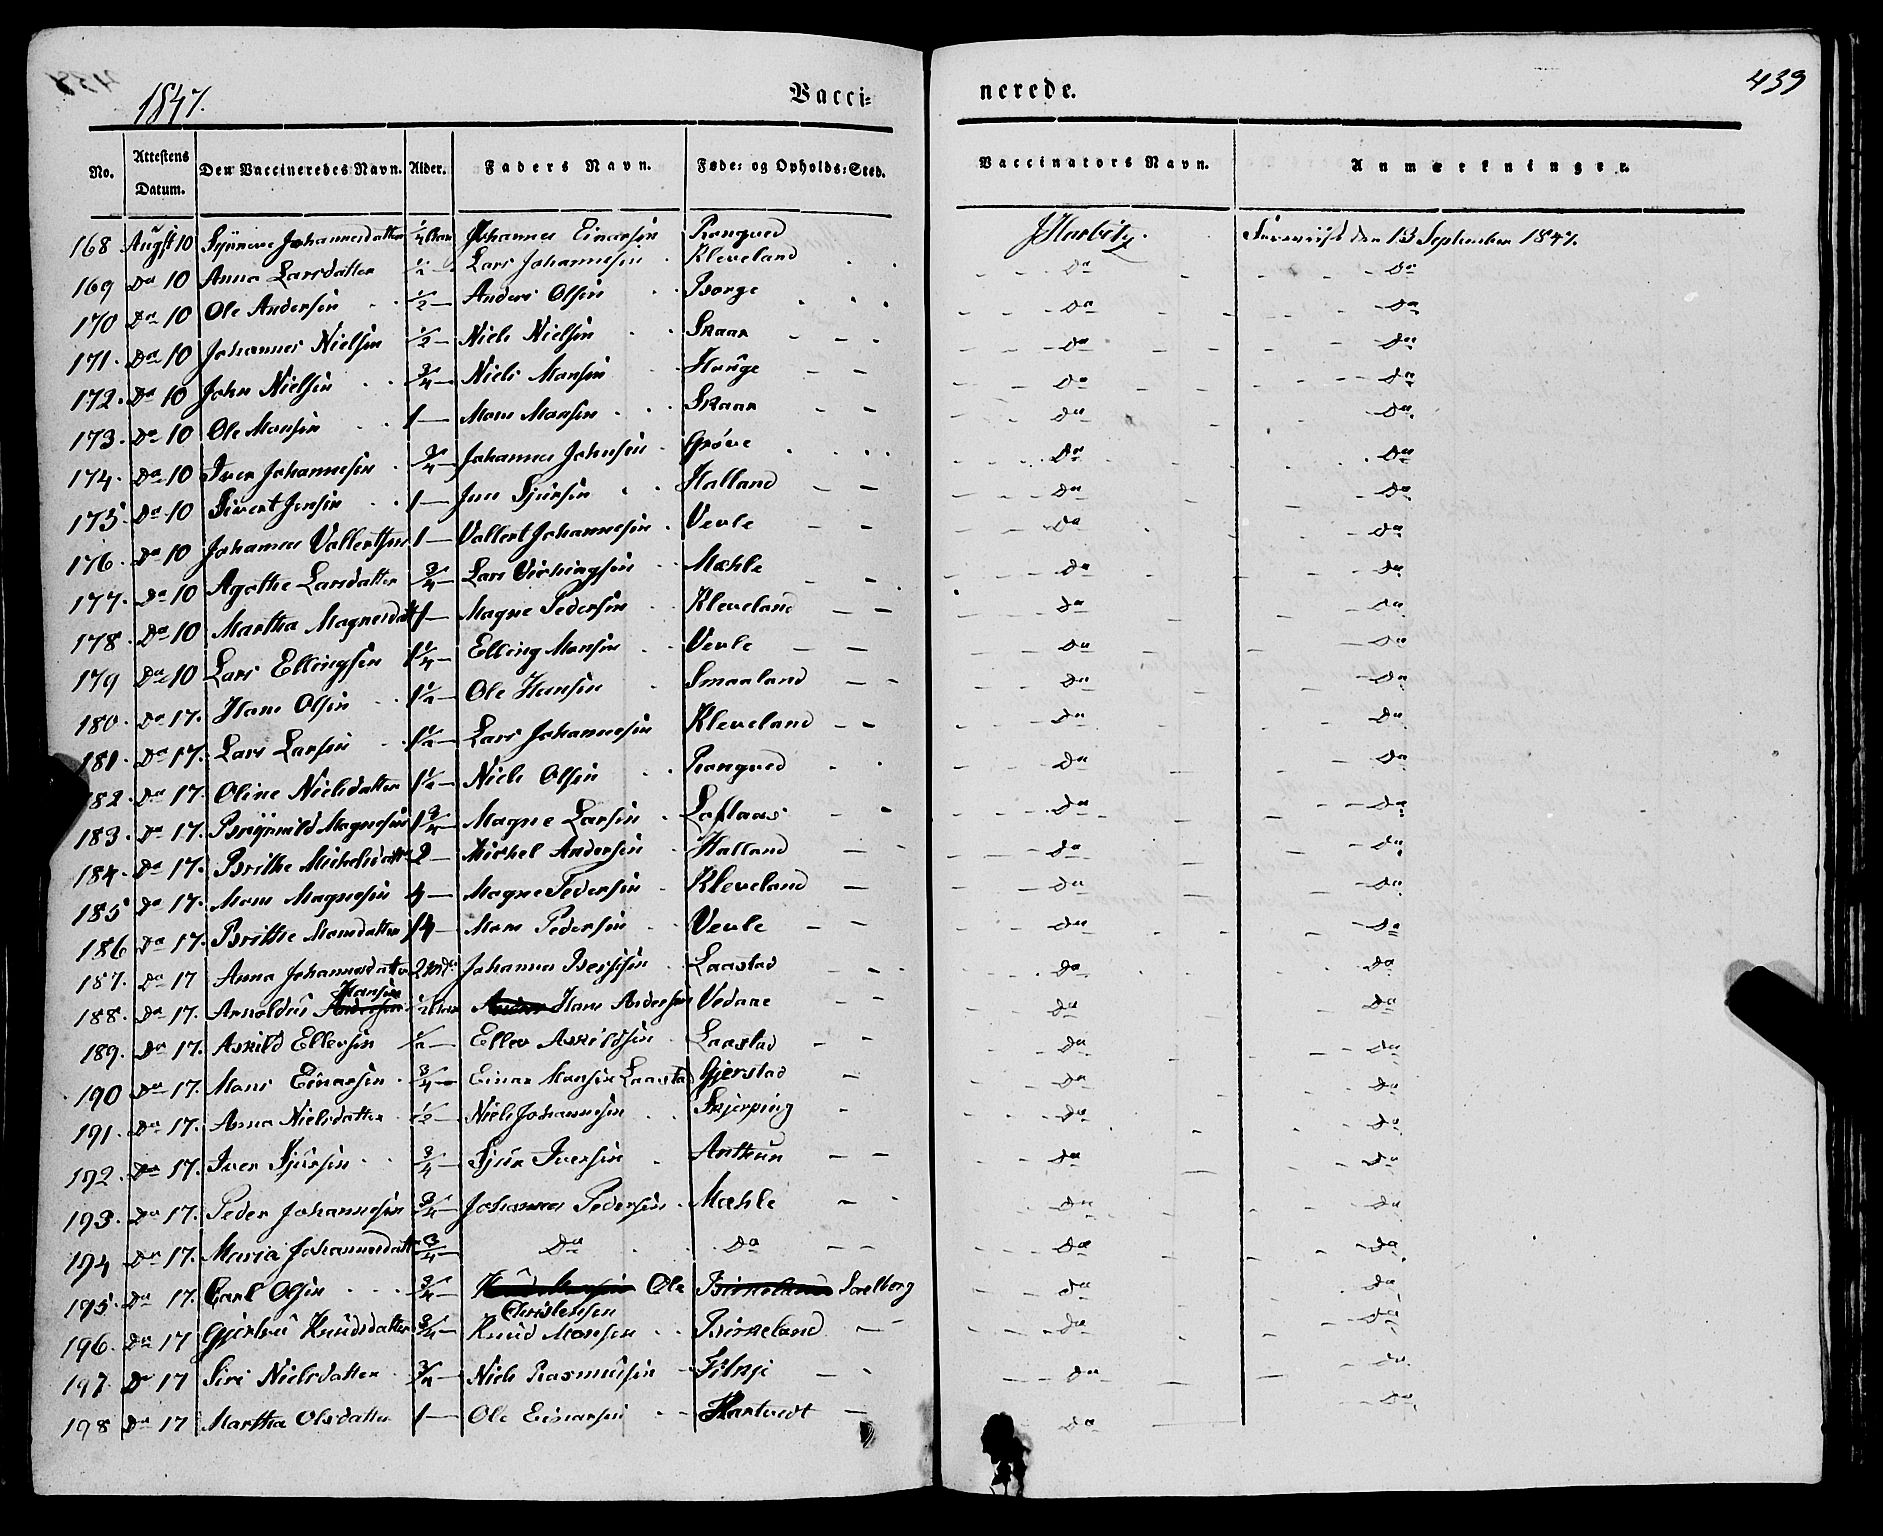 1847.
Vacci=
nerede.
439
No. Attestens Datum. Den Vaccineredes Navn. Alder. Faders Navn. Føde= og Opholds=Sted. Vaccinators Navn. Anmærkninger.
168 Augst 10 Synneve Johannesdatter 1/4 Aar Johannes Einarsen Rongved JHarbitz. den 13 September 1847.
169 Do 10 Anna Larsdatter 1/2 Lars Johannesen Kleveland - Do - Do
170 Do 10 Ole Andersen 1/2 - Anders Olsen Borge - Do - Do
171. Do 10 Johannes Nielsen 1/2 - Niels Nielsen Skaar - Do - Do
172. Do 10 John Nielsen 3/4 - Niels Monsen Hauge - Do - Do
173. Do 10 Ole Monsen 1 - Mons Monsen Skaar - Do - Do
174. Do 10 Iver Johannesen 3/4 - Johannes Johnsen Grôve - Do - Do
175. Do 10 Sivert Jensen 1 - Jens Sjursen Halland - Do - Do
176. Do 10 Johannes Vallertsen 1 - Vallert Johannesen Vevle - Do - Do
177. Do 10 Agathe Larsdatter 3/4 - Lars Mæhle - Do - Do
178. Do 10 Martha Magnesdatt 1 - Magne Pedersen Kleveland - Do - Do
179 Do 10 Lars Ellingsen 1 1/4 - Elling Monsen Vevle - Do - Do
180. Do 17. Hans Olsen 1 1/2 - Ole Hansen Smaaland - Do - Do
181. Do 17. Lars Larsen 1 1/2 - Lars Johannesen Kleveland - Do - Do
182. Do 17. Oline Nielsdatter 1 1/2 - Niels Olsen Rongved - Do - Do
183. Do 17. Brÿnild Magnesen 1 3/4 - Magne Larsen Loftaas - Do - Do
184. Do 17. Brithe Michelsdatt 2 - Michel Andersen Halland - Do - Do
185 Do 17. Mons Magnesen 4 - Magne Pedersen Kleveland - Do - Do
186 Do 17. Brithe Monsdatter 14 - Mons Pedersen Vevle - Do - Do
187. Do 17 Anna Johannesdatter 2 Johannes Laastad - Do - Do
Hansen
188. Do 17. Arnoldus 1/2 Aar Hans Andersen Vedaae - Do - Do
189. Do 17. Askild Ellefsen 1/2 - Ellev Askildsen Laastad - Do - Do
190 Do 17. Mons Einarsen 3/4 - Einar Monsen Laastad Gjerstad - Do - Do
191. Do 17. Anna Nielsdatter 1/2 Niels Johannesen Skjerping - Do - Do
192. Do 17. Iver Sjursen 3/4 - Sjur Iversen Anthun - Do - Do
193. Do 17. Peder Johannesen 3/4 - Johannes Pedersen Mæhle - Do - Do
194 Do 17. Maria Johannesdatt 3/4 - Do Do - Do - Do
195. Do 17. Carl Olsen 3/4 - Ole - Do - Do
Christensen
196. Do 17 Gjertrû Knudsdatter 3/4 - Knud Monsen Birkeland - Do - Do
197 Do 17 Siri Nielsdatter 3/4 - Niels Rasmusen - Do - Do
198 Do 17 Martha Olsdatter 1 - Ole Einarsen Hartvedt - Do - Do